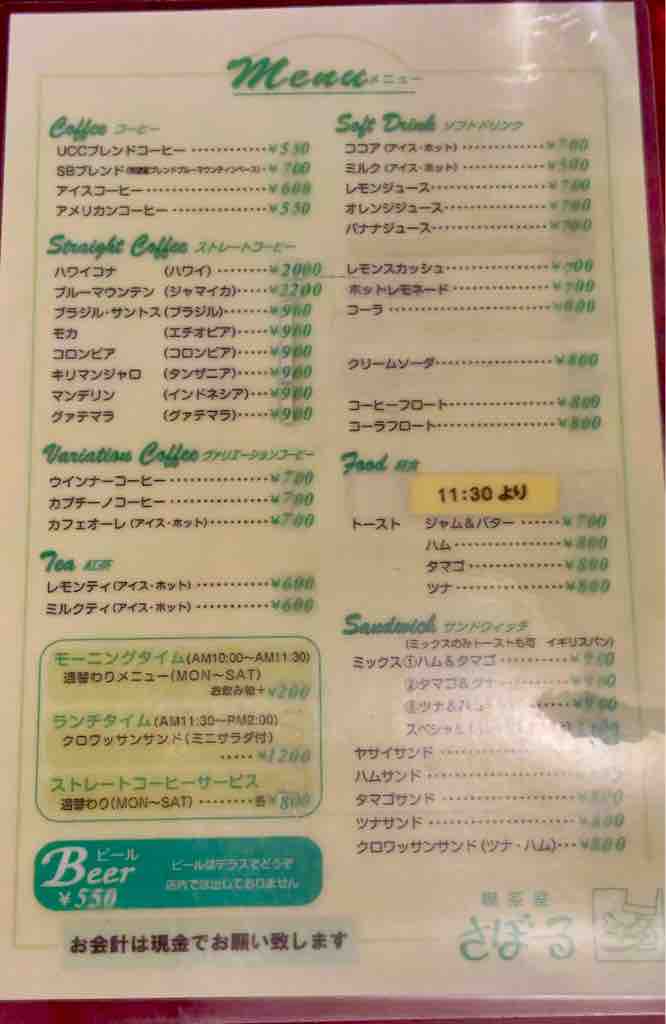 Menu メニュー
Coffee コーヒー
UCCブレンドコーヒー ¥550
SBブレンド ¥700
アイスコーヒー ¥600
アメリカンコーヒー ¥550
Straight Coffee ストレートコーヒー
ハワイコナ (ハワイ) ¥2000
ブルーマウンテン (ジャマイカ) ¥2200
ブラジル・サントス (ブラジル) ¥900
モカ (エチオピア) ¥900
コロンビア (コロンビア) ¥900
キリマンジャロ (タンザニア) ¥900
マンデリン (インドネシア) ¥900
グァテマラ (グァテマラ) ¥900
Variation Coffee ヴァリエーションコーヒー
ウインナーコーヒー ¥700
カプチーノコーヒー ¥700
カフェオーレ (アイス・ホット) ¥700
Tea 紅茶
レモンティ (アイス・ホット) ¥600
ミルクティ (アイス・ホット) ¥600
モーニングタイム (AM10:00〜AM11:30)
週替わりメニュー (MON〜SAT)
お飲み物+¥200
ランチタイム (AM11:30〜PM2:00)
クロワッサンサンド (ミニサラダ付)
¥1200
ストレートコーヒーサービス
週替わり (MON〜SAT) 各¥800
Beer ビール
¥550
ビールはテラスでどうぞ
店内では出しておりません
お会計は現金でお願い致します
Soft Drink ソフトドリンク
ココア (アイス・ホット) ¥700
ミルク (アイス・ホット) ¥500
レモンジュース ¥700
オレンジジュース ¥700
バナナジュース ¥700
レモンスカッシュ ¥700
ホットレモネード ¥700
コーラ ¥600
クリームソーダ ¥800
コーヒーフロート ¥800
コーラフロート ¥800
Food 軽食
11:30 より
トースト ジャム&バター ¥700
ハム ¥800
タマゴ ¥800
ツナ ¥800
Sandwich サンドウィッチ
(ミックスのみトーストも可 イギリスパン)
ミックス ①ハム&タマゴ ¥900
②タマゴ&ツナ ¥900
③ツナ&ハム ¥900
スペシャル
ヤサイサンド
ハムサンド
タマゴサンド ¥800
ツナサンド ¥800
クロワッサンサンド (ツナ・ハム) ¥800
喫茶屋
さぼーる